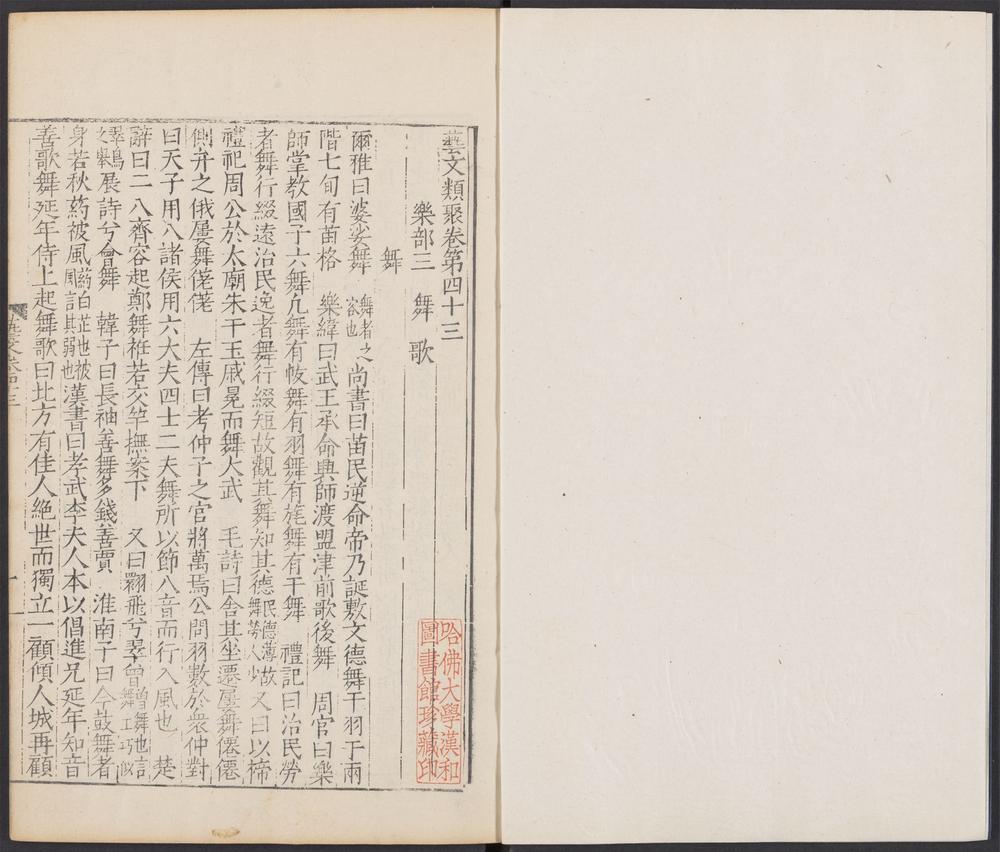 藝文類聚卷第四十三
樂部三　舞　歌
舞
爾雅曰婆娑舞舞者之容也尚書曰苗民逆命帝乃誕敷文德舞干羽于兩
階七旬有苗格　樂緯曰武王承命興師渡盟津前歌後舞　周官曰樂
師掌教國子六舞凢舞有帗舞有羽舞有旄舞有干舞　禮記曰治民勞
者舞行綴遠治民逸者舞行綴短故觀其舞知其德民德薄故舞勞人少又曰以禘
禮祀周公於太廟朱干玉戚冕而舞大武　毛詩曰舍其坐遷屢舞僊僊
側弁之俄屢舞傞傞　左傳曰考仲子之宫將萬焉公問羽數於衆仲對
曰天子用八諸侯用六大夫四士二夫舞所以節八音而行八風也　楚
辭曰二八齊容起鄭舞袵若交竿撫案下　又曰翾飛兮翠曾曾舞也言舞工巧似
翠鳥之舉展詩兮會舞　韓子曰長袖善舞多錢善賈　淮南子曰今鼓舞者
身若秋葯被風葯白芷也被風言其弱也漢書曰孝武李夫人本以倡進兄延年知音
善歌舞延年侍上起舞歌曰北方有佳人絕世而獨立一顧傾人城再顧
藝文卷四十三
一
哈佛大學漢和
圖書館珍藏印